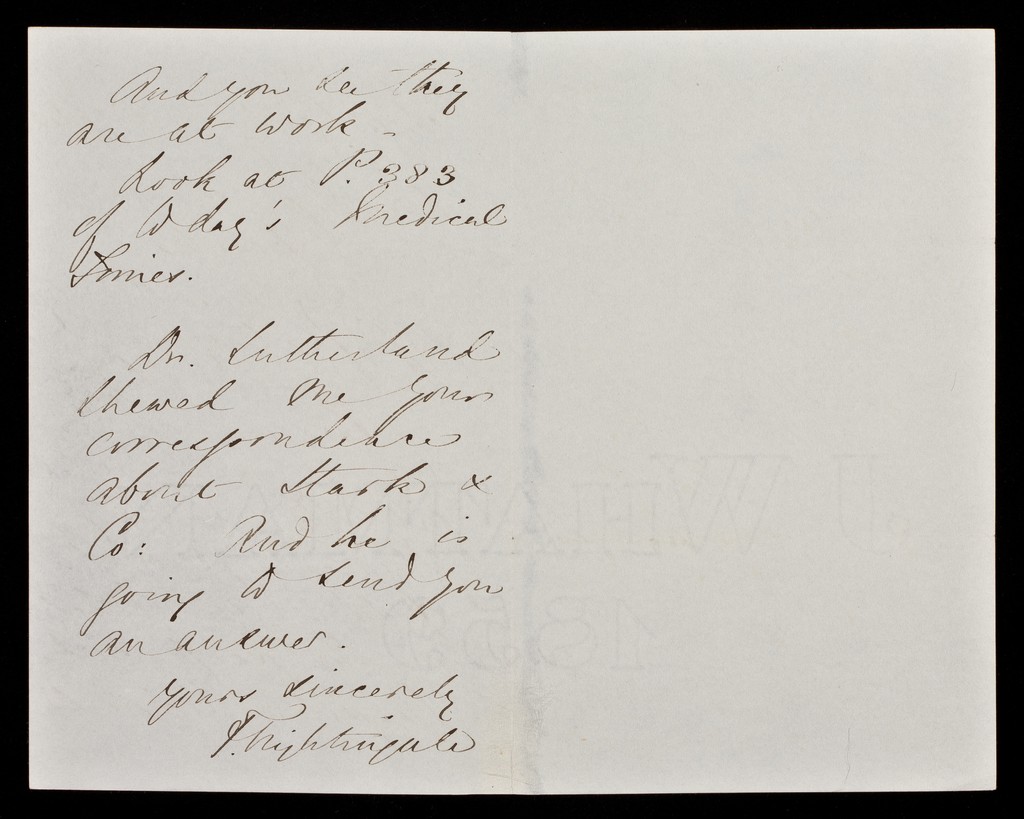 And you see they
are at work -
Look at P. 383
of to day's Medical
Times.
Dr. Sutherland
shewed me your
correspondence
about Stark &
Co: And he is
going to send you
an answer.
Yours sincerely
F. Nightingale
J WHATMAN
1859